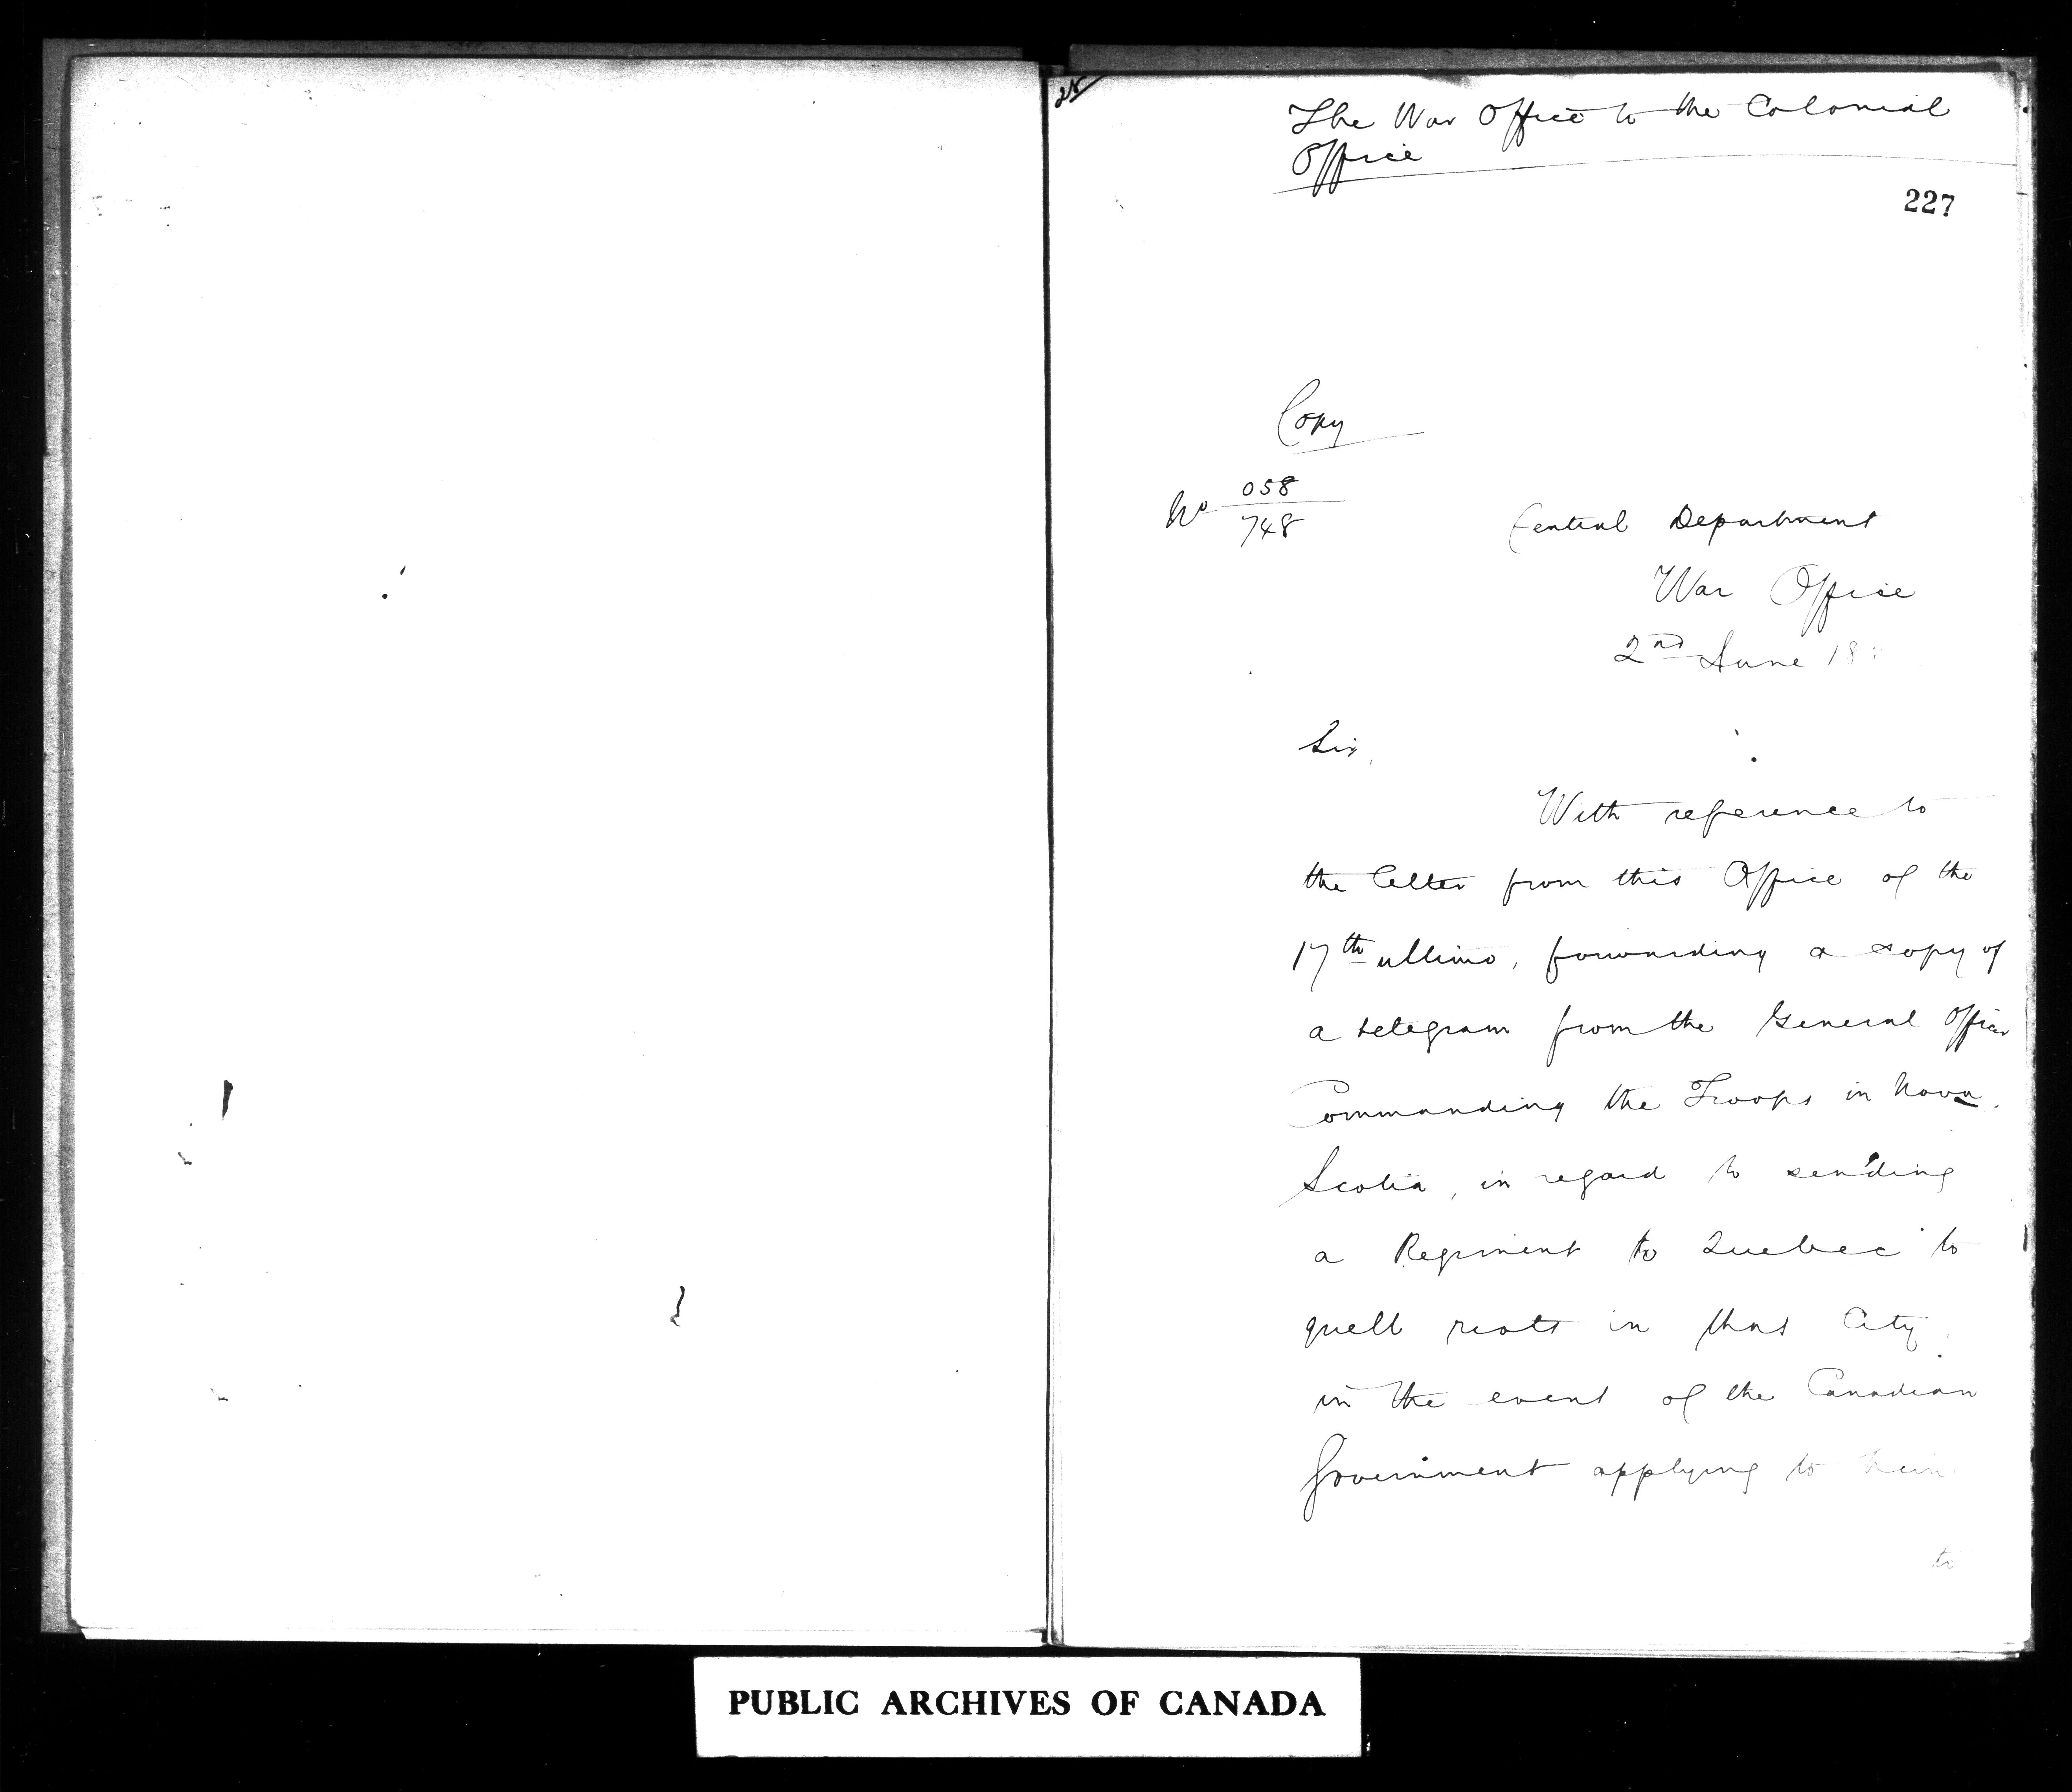 25
The War Office to the Colonial
Office
227
Copy
No 058
748
Central Department
War Office
2nd June 18
Sir,
With reference to
the letter from this Office of the
17th ultimo, forwarding a copy of
a telegram from the General Officer
Commanding the Troops in Nova
Scotia, in regard to sending
a Regiment to Quebec to
quell riots in that City
in the event of the Canadian
Government applying to
to
PUBLIC ARCHIVES OF CANADA